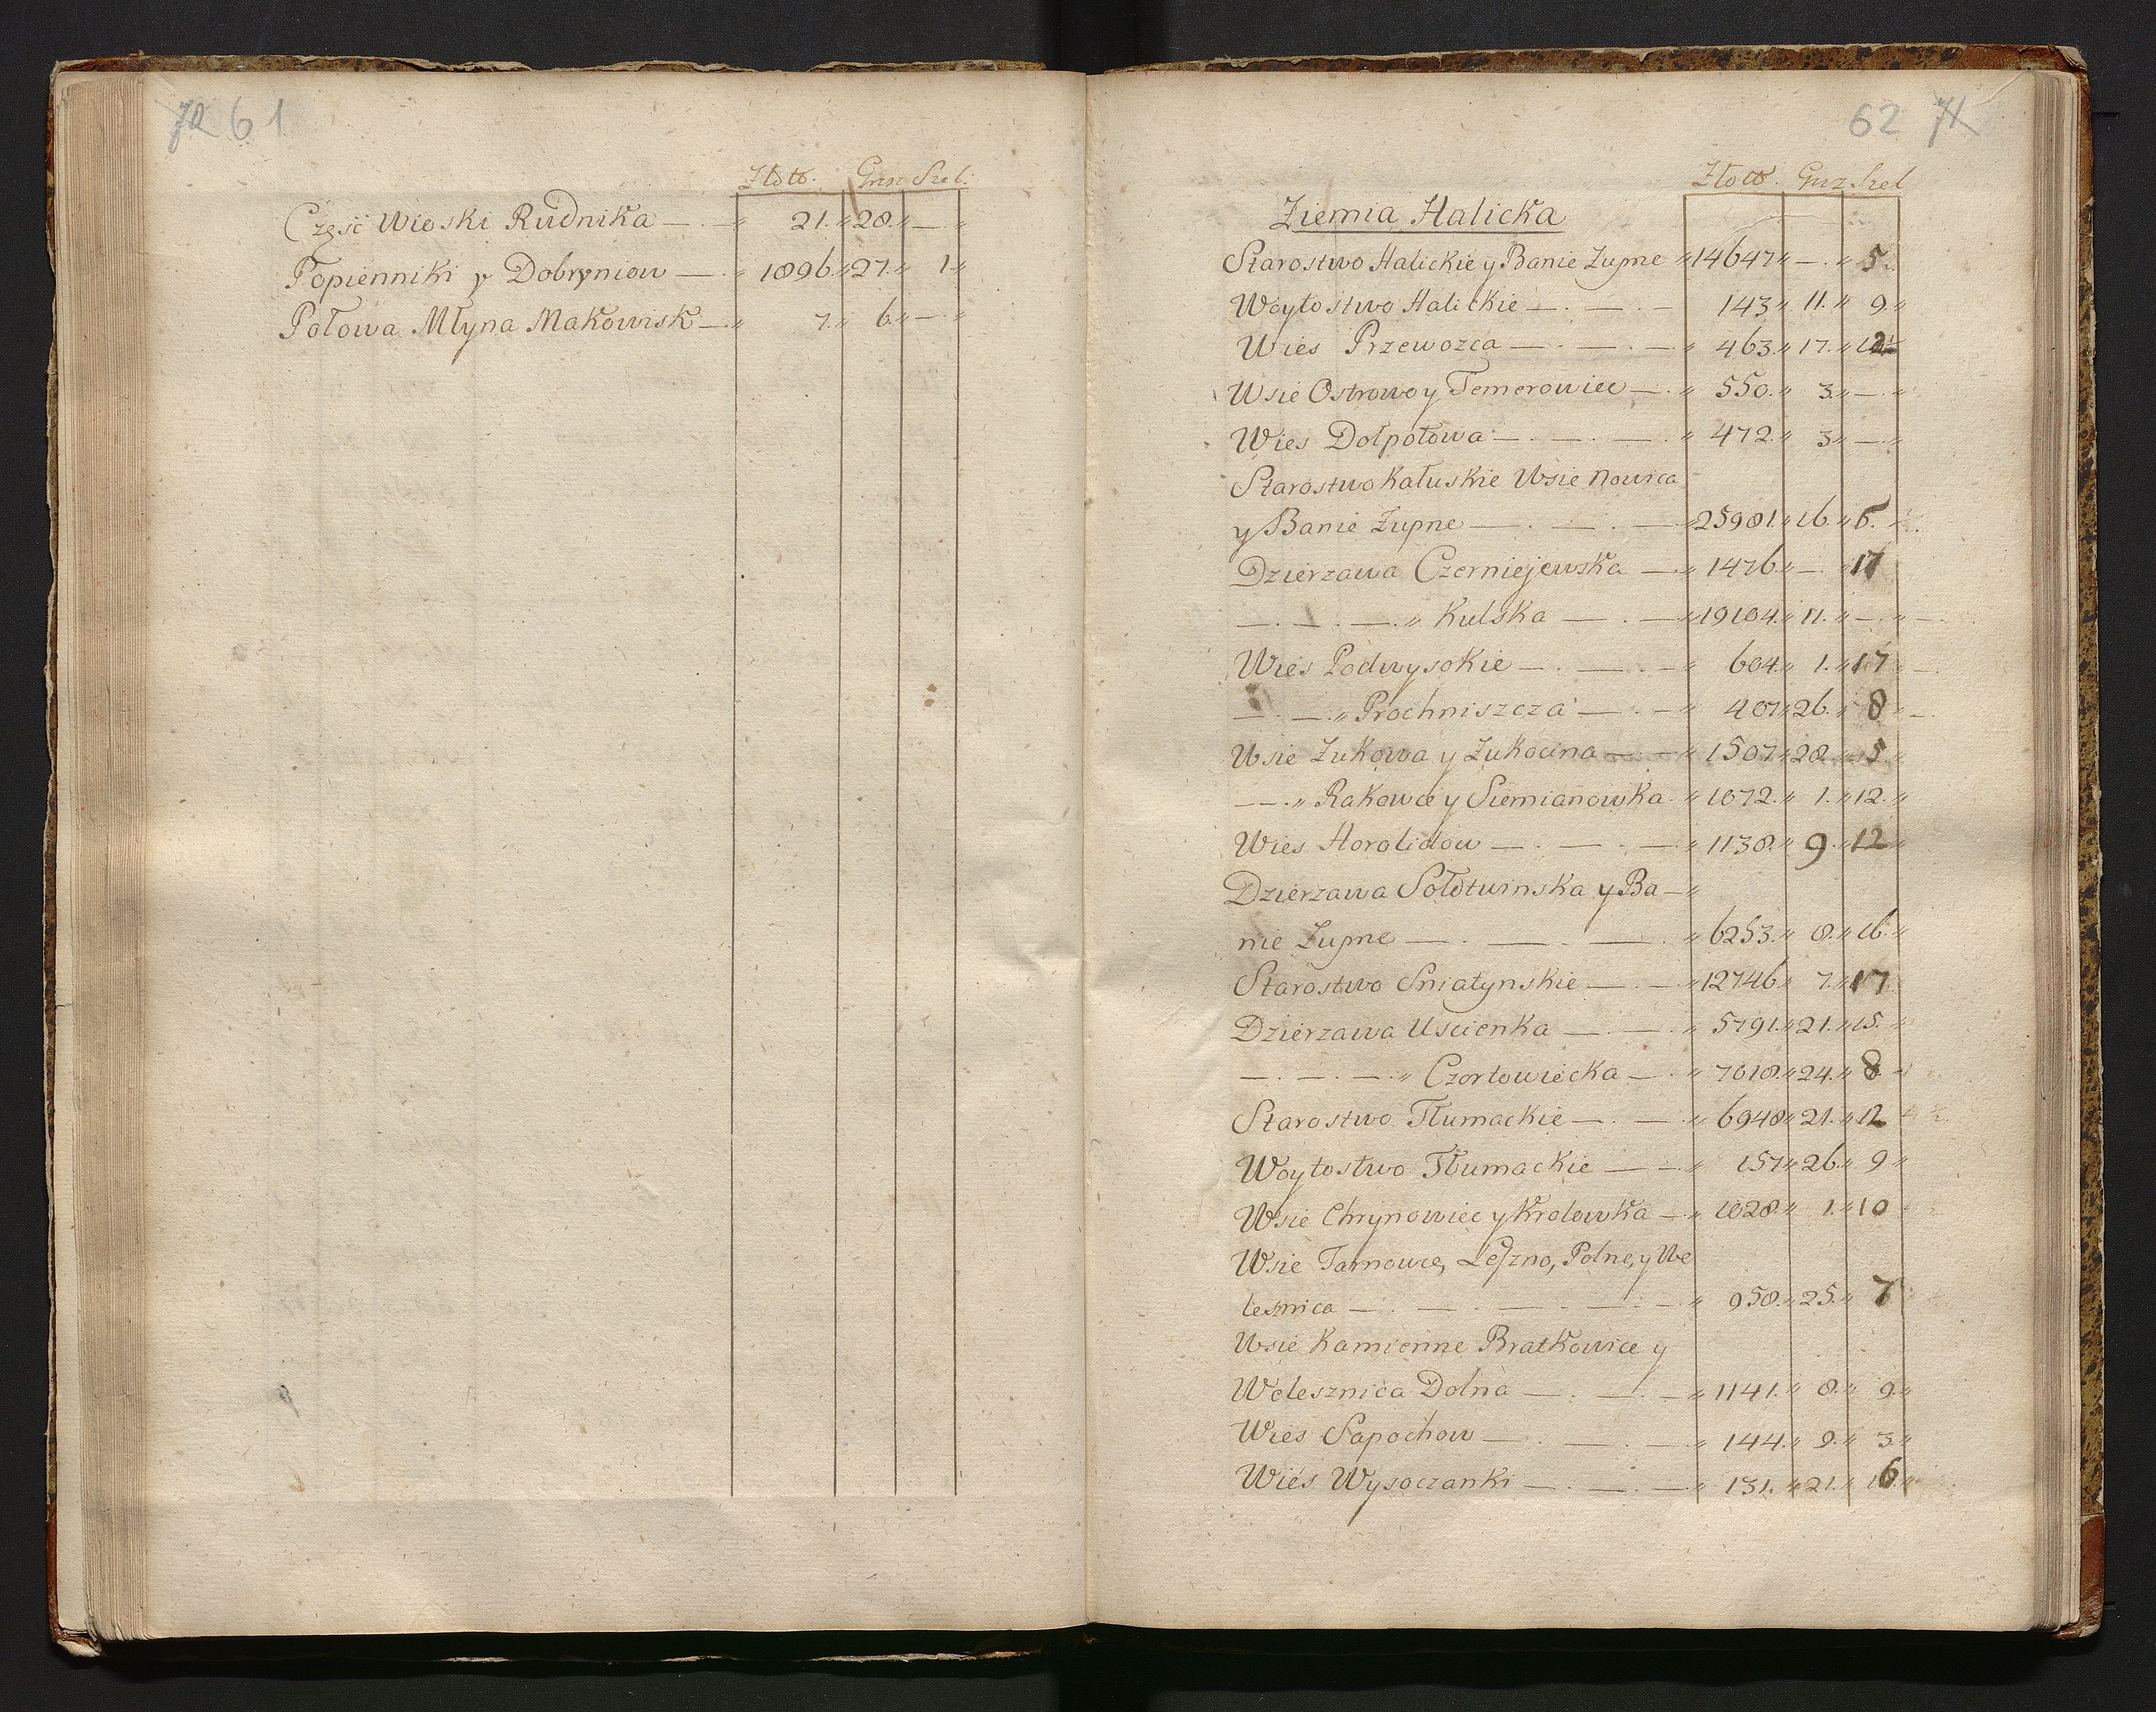 70 61
Złott. Grsz Szel:
Część Wioski Rudnika — . — " 21. " 28. " — "
Popienniki y Dobryniow — . " 1896. " 27. " 1 "
Połowa Młyna Makowisk — . " 7. " 6. " — "
62 71
Złott. Grsz. Szel
Ziemia Halicka
Starostwo Halickie y Banie Żupne " 14647 " — . " 5.
Woytostwo Halickie — . — . — 143 " 11. " 9. "
Wieś Przewozca — . — . — " 463. " 17. "
Wsie Ostrowo y Temerowiec — . " 550. " 3. " — . "
Wies Dołpotowa — . — . — . " 472. " 3 " — . "
Starostwo Kałuskie Wsie Nowica
y Banie Żupne — . — . — " 25981. " 16. " 5.
Dzierzawa Czerniejewska — . " 1476. " — . " 17
— . — . — . " Kulska — . — " 19184. " 11. " — . "
Wieś Podwysokie — . — . — " 604. " 1. " 17
— . — . " Prochniszcza — . — " 407 " 26. " 8 "
Wsie Żukowa y Żukocina — . — " 1507. " 28. " 5. "
— — . " Rakowce y Siemianowka. " 1072. " 1. " 12. "
Wies Horolidow — . — . — " 1138. " 9. " 12
Dzierzawa Sołotwinska y Ba — "
nie Żupne — . — . — . " 6253. " 8. " 16. "
Starostwo Sniatynskie — . — " 12746. " 7. " 17
Dzierzawa Uscienka — . — . " 5791. " 21. " 15. "
— . — . — . " Czortowiecka — . " 7018. " 24. " 8
Starostwo Tłumackie — . — . " 6948 " 21. " 12
Woytostwo Tłumackie — . — . " 157 " 26. " 9 "
Wsie Chrynowiec y Krolowka — . " 1028. " 1. " 10
Wsie Tarnowce, Leszno, Polne, y We
lesnica — . — . — . — . — " 958. " 25. " 7
Wsie Kamienne Bratkowice y
Welesznica Dolna — . — . — " 1141. " 8. " 9. "
Wies Sapochow — . — . — . " 144. " 9. " 3. "
Wieś Wysoczanki — . — . — " 131. " 21. " 16. "